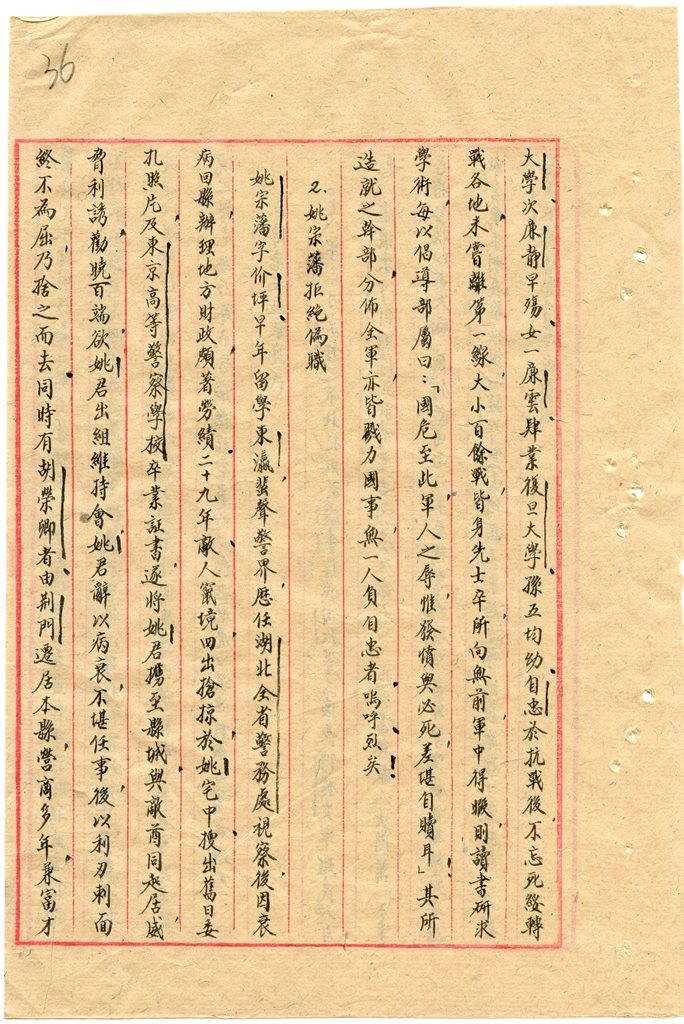 36
大學、次廉靜早殤、女一廉雲肄業復旦大學、孫五均幼、自忠於抗戰後、不忘死綏、轉
戰各地、未嘗離第一線、大小百餘戰、皆身先士卒、所向無前、軍中得暇、則讀書研求
學術、每以倡導部屬曰:「國危至此、軍人之辱、惟發憤與必死、差堪自贖耳」其所
造就之幹部、分佈全軍、亦皆戮力國事、無一人負自忠者、嗚呼烈矣!
2.姚宗藩拒絶偽職
姚宗藩字价坪、早年留學東瀛、蜚聲警界、歷任湖北全省警務處視察、後因衰
病回縣、辦理地方財政、頗著勞績、二十九年敵人竄境、四出搶掠、於姚宅中搜出舊日委
扎照片及東京高等警察學校卒業証書、遂將姚君擄至縣城、與敵酋同起居、威
脅利誘、勸曉百端、欲姚君出組維持會、姚君辭以病衰、不堪任事、後以利刃刺面、
終不為屈、乃捨之而去、同時有胡榮卿者、由荆門遷居本縣、營商多年、兼富才